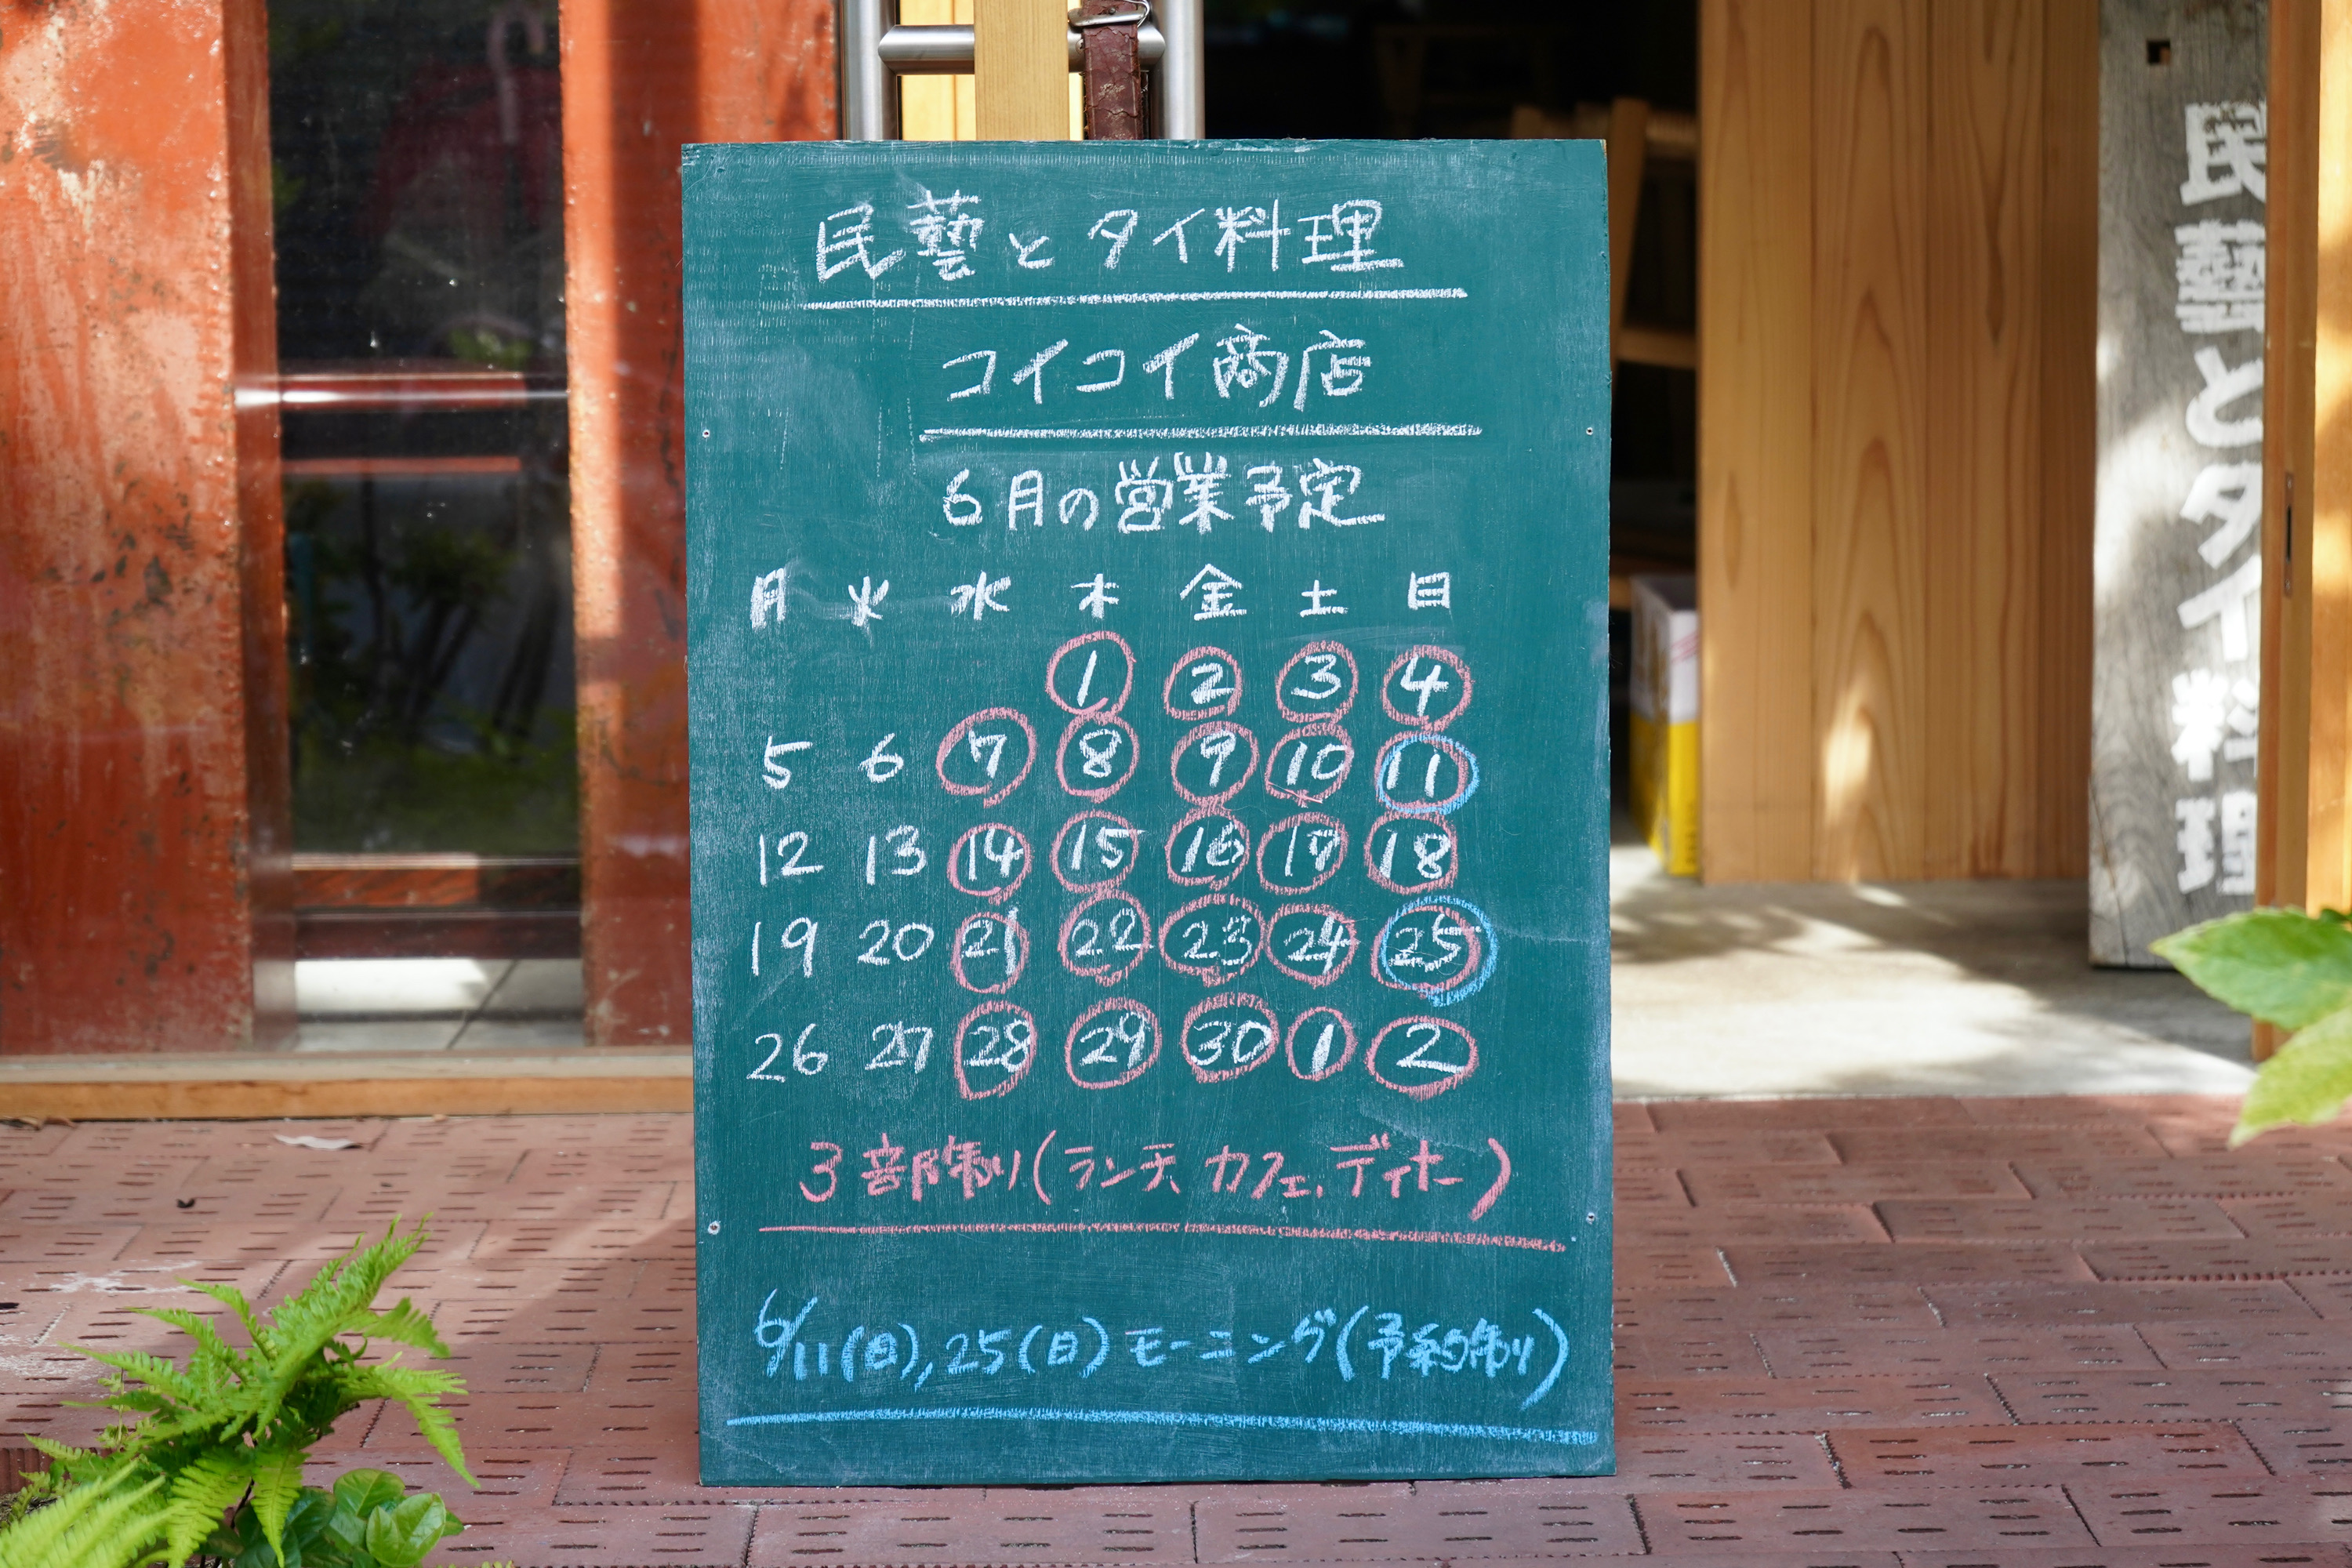 民藝とタイ料理
コイコイ商店
6月の営業予定
月 火 水 木 金 土 日
1 2 3 4
5 6 7 8 9 10 11
12 13 14 15 16 17 18
19 20 21 22 23 24 25
26 27 28 29 30 1 2
3部制り(ランチ カフェ、ディナー)
6/11(日),25(日)モーニング(予約制り)
民藝とタイ料理